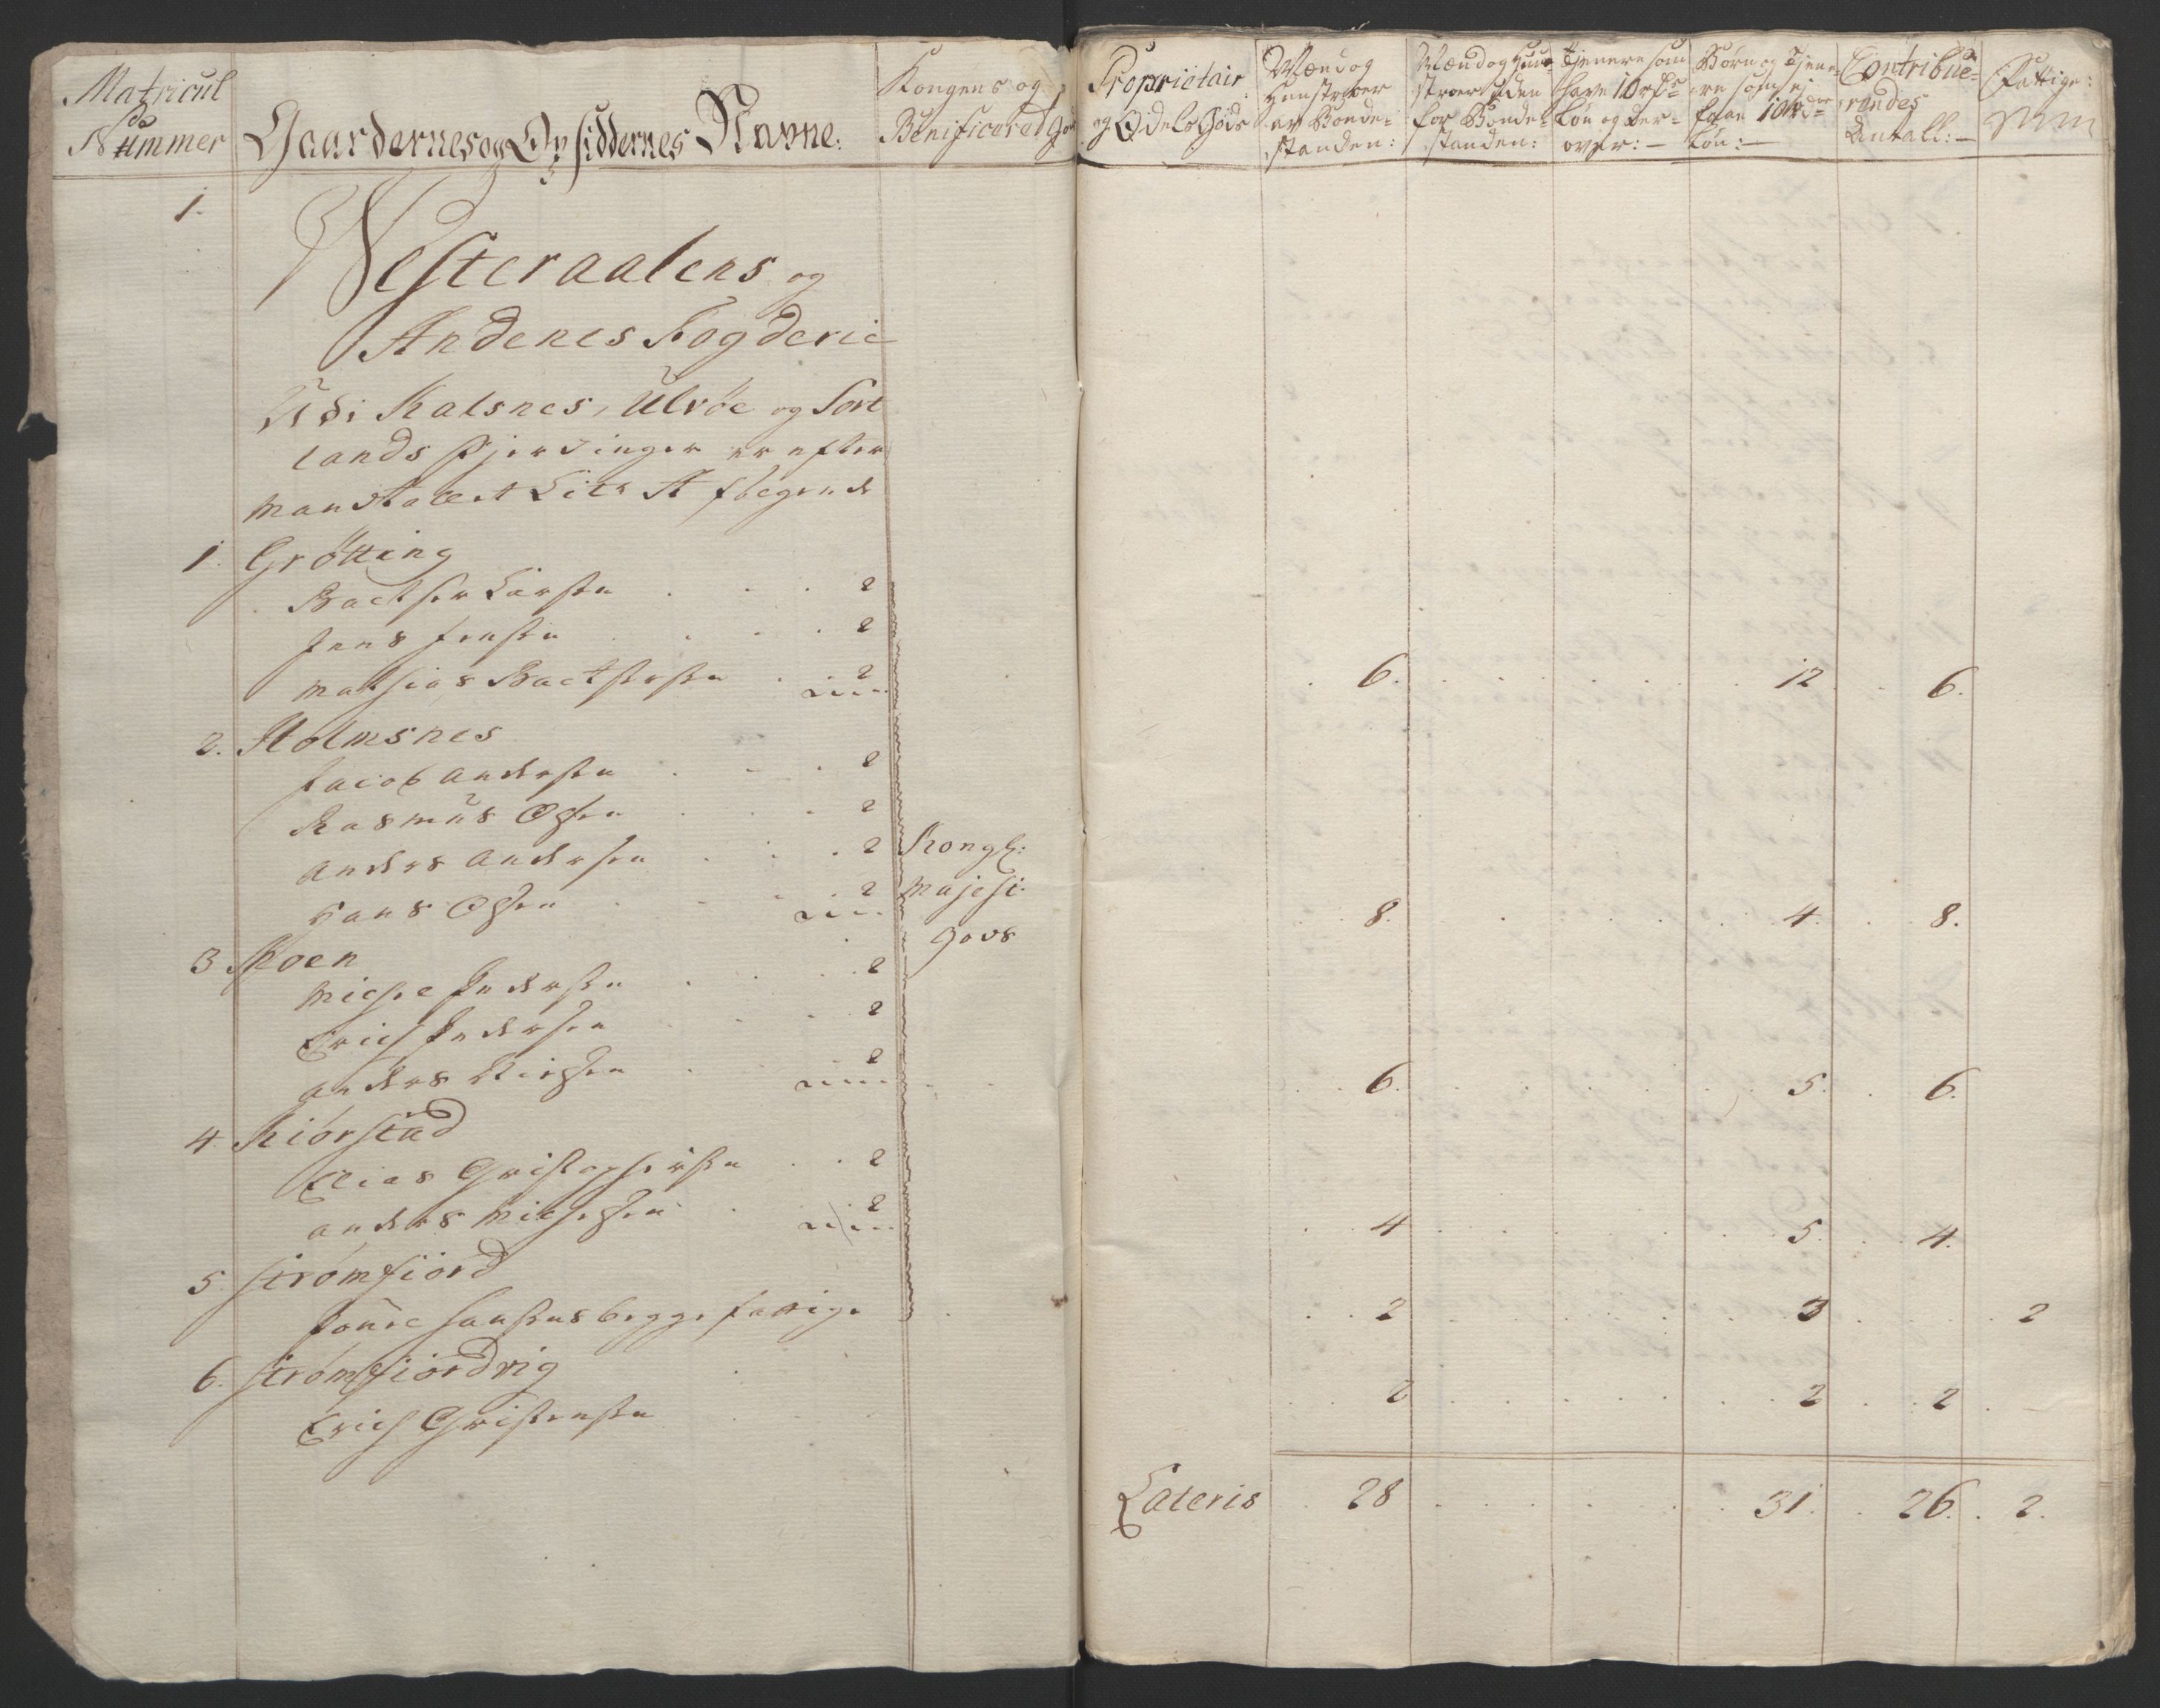 Matricul
Nummer
Gaardernes og Opsiddernes Navne:
Kongens og
Benificeret God
Proprietair
og Odels Gods
Mænd og
Hustroer
av Bonde-
standen:
Mænd og Hu-
stroer uden
for Bonde-
standen:
Tienere som
have 10 rdr
Løn og der-
over:
Børn og Tiene-
re som ej
faaer 10 rdr
Løn:
Contribue-
rendes
Antall:
Fattige:
1.
Westeraalens og
Andenes Fogderie
Udi Kalsnes, Ulvøe og Sort
lands Fjerdinger er efter
Mandtallet Litr A følgende
1. Grötting
Baltzer Larsen . . . 2
Jens Jensen . . . 2
Mathias Baltzersen . . 2
6. 12 6.
2. Holmsnes
Jacob Andersen . . . 2
Rasmus Olsen . . . 2
Anders Andersen . . . 2
Hans Olsen . . . 2
Kongl:
Majest:
Gods
8. 4. 8.
3 Moen
Michel Pedersen . . . 2
Erich Pedersen . . . 2
Anders Nielsen . . . 2
6. 5. 6.
4. Kiörstad
Elias Christophersen . . 2
Anders Michelsen . . 2
4 5. 4.
5 Strömfiord
Jonne Hansens begge fattige
2 3 2
6. Strömfiordvig
Erich Christensen
2 2 2
Lateris 28 31. 26. 2.